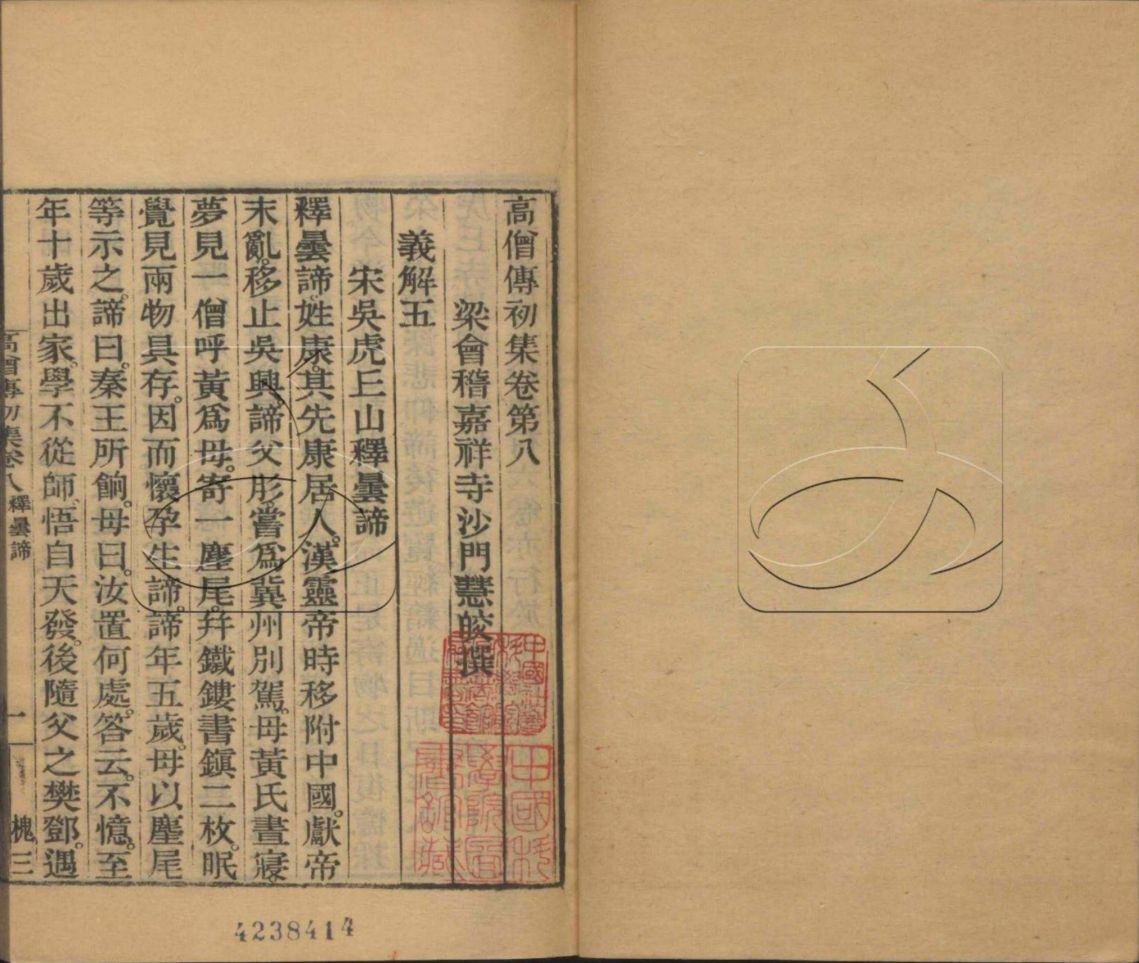 高僧傳初集卷第八
梁會稽嘉祥寺沙門慧皎撰
義解五
宋吳虎丘山釋曇諦
釋曇諦。姓康。其先康居人。漢靈帝時移附中國。獻帝
末亂。移止吳興。諦父肜。嘗爲冀州別駕。母黃氏晝寢。
夢見一僧呼黃爲母。寄一麈尾。幷鐵鏤書鎭二枚。眠
覺見兩物具存。因而懷孕生諦。諦年五歲。母以麈尾
等示之。諦曰。秦王所餉。母曰。汝置何處。答云。不憶。至
年十歲出家。學不從師。悟自天發。後隨父之樊鄧。遇
高僧傳初集卷八 釋曇諦 一 槐三
4238414